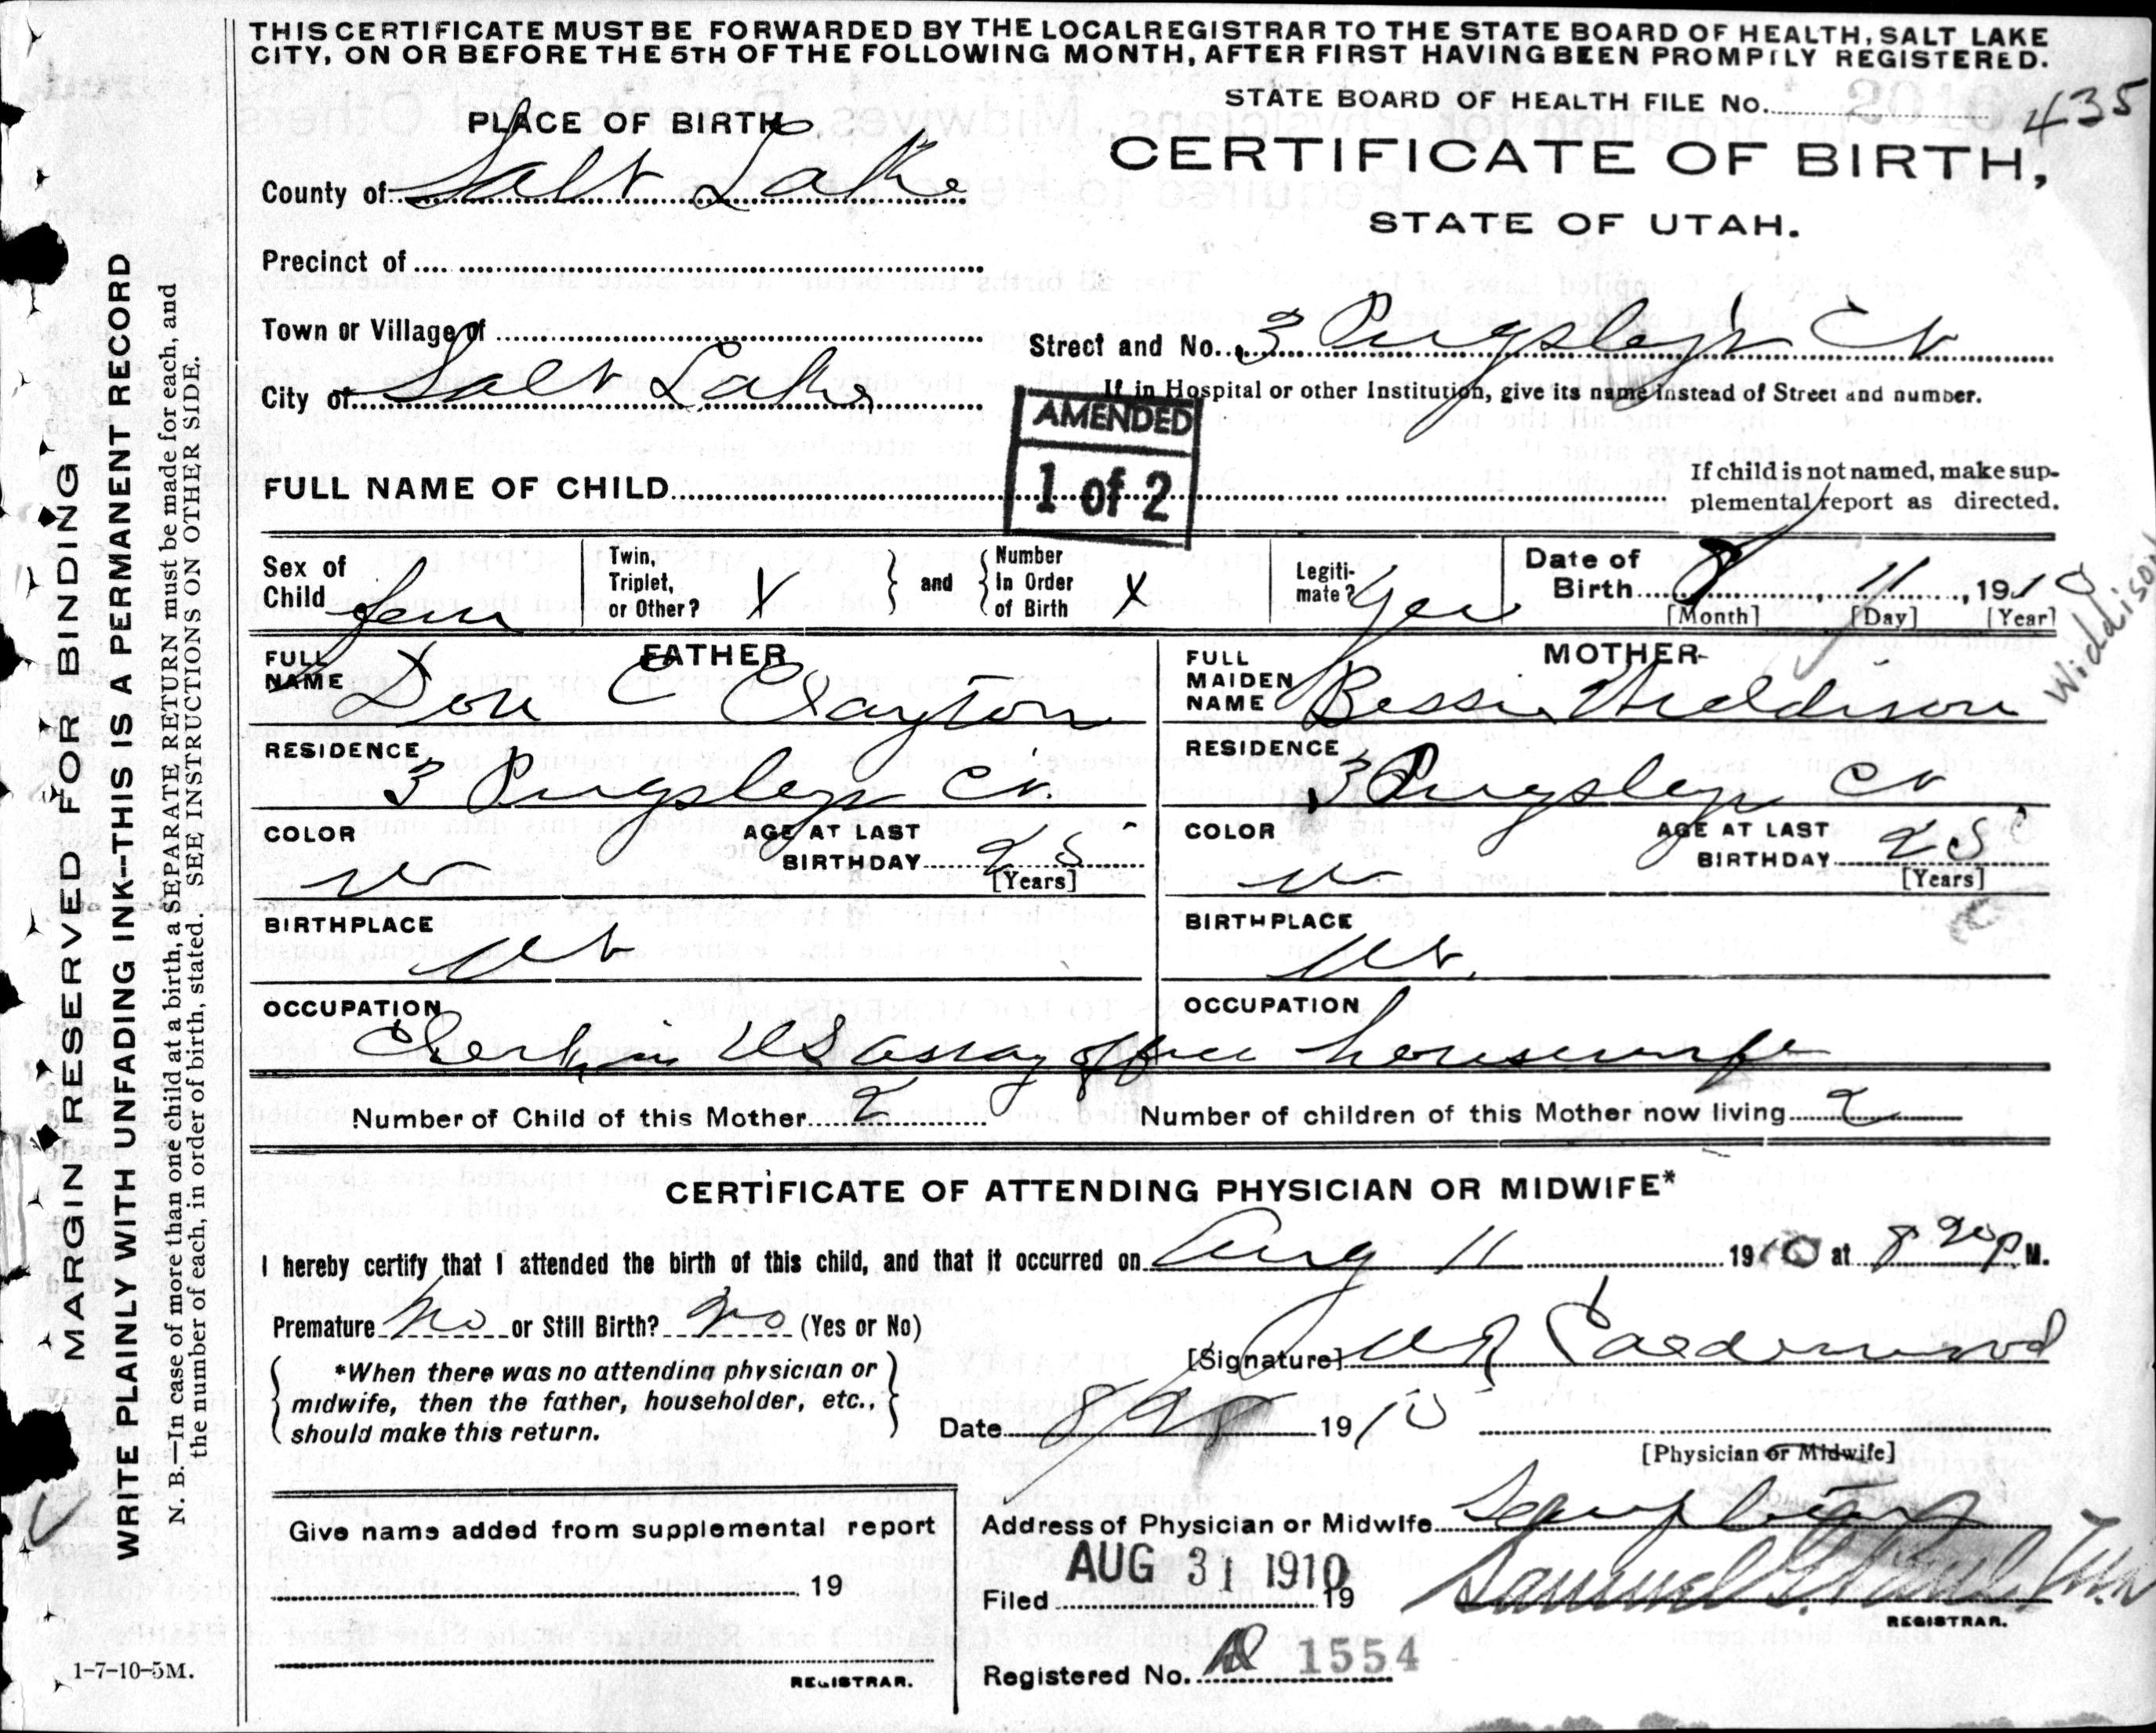 THIS CERTIFICATE MUST BE FORWARDED BY THE LOCAL REGISTRAR TO THE STATE BOARD OF HEALTH, SALT LAKE
CITY, ON OR BEFORE THE 5TH OF THE FOLLOWING MONTH, AFTER FIRST HAVING BEEN PROMPTLY REGISTERED.
STATE BOARD OF HEALTH FILE No. 435
PLACE OF BIRTH
CERTIFICATE OF BIRTH,
County of Salt Lake
STATE OF UTAH.
Precinct of
Town or Village of
Street and No. 3 Pugsley Ct
City of Salt Lake
If in Hospital or other Institution, give its name instead of Street and number.
AMENDED
1 of 2
FULL NAME OF CHILD
If child is not named, make sup-
plemental report as directed.
Sex of Child fem
Twin, Triplet, or Other? X
and
Number In Order of Birth X
Legiti-mate? Yes
Date of Birth 8, 11, 1910
[Month] [Day] [Year]
Widdison
FATHER
FULL NAME Don C Clayton
MOTHER
FULL MAIDEN NAME Bessie Widdison
RESIDENCE 3 Pugsley Ct.
RESIDENCE 3 Pugsley Ct
COLOR W
AGE AT LAST BIRTHDAY 25
[Years]
COLOR W
AGE AT LAST BIRTHDAY 25
[Years]
BIRTHPLACE Ut
BIRTHPLACE Ut.
OCCUPATION Clerk in US assay office
OCCUPATION housewife
Number of Child of this Mother 2
Number of children of this Mother now living 2
CERTIFICATE OF ATTENDING PHYSICIAN OR MIDWIFE*
I hereby certify that I attended the birth of this child, and that it occurred on Aug 11 1910 at 8 20 P M.
Premature No or Still Birth? No (Yes or No)
[Signature] Calderwood
*When there was no attending physician or
midwife, then the father, householder, etc.,
should make this return.
Date 1910
[Physician or Midwife]
Give name added from supplemental report
19
REGISTRAR.
Address of Physician or Midwife
Filed AUG 31 1910 19
Samuel G. Paul
REGISTRAR.
Registered No. 1554
1-7-10-5M.
MARGIN RESERVED FOR BINDING
WRITE PLAINLY WITH UNFADING INK--THIS IS A PERMANENT RECORD
N. B.—In case of more than one child at a birth, a SEPARATE RETURN must be made for each, and
the number of each, in order of birth, stated. SEE INSTRUCTIONS ON OTHER SIDE.